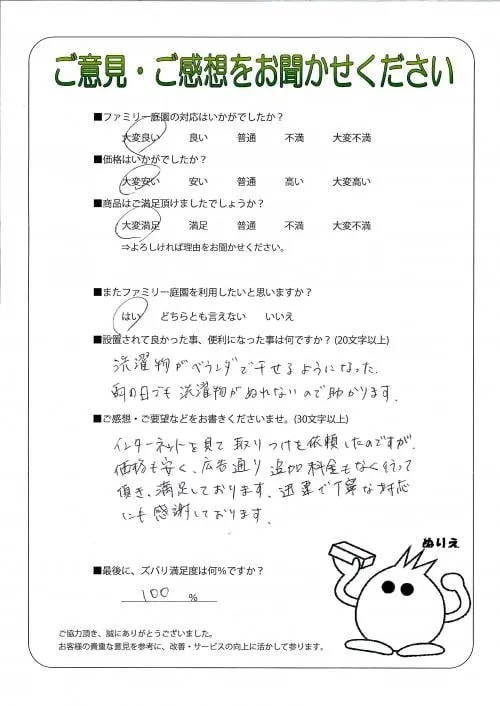 ご意見・ご感想をお聞かせください
■ファミリー庭園の対応はいかがでしたか？
大変良い 良い 普通 不満 大変不満
■価格はいかがでしたか？
大変安い 安い 普通 高い 大変高い
■商品はご満足頂けましたでしょうか？
大変満足 満足 普通 不満 大変不満
⇒よろしければ理由をお聞かせください。
■またファミリー庭園を利用したいと思いますか？
はい どちらとも言えない いいえ
■設置されて良かった事、便利になった事は何ですか？(20文字以上)
洗濯物がベランダで干せるようになった.
雨の日でも洗濯物がぬれないので助かります.
■ご感想・ご要望などをお書きくださいませ。(30文字以上)
インターネットを見て取りつけを依頼したのですが.
価格も安く、広告通り追加料金もなく行って
頂き、満足しております. 迅速で丁寧な対応
にも感謝しております.
ぬりえ
■最後に、ズバリ満足度は何％ですか？
100 ％
ご協力頂き、誠にありがとうございました。
お客様の貴重な意見を参考に、改善・サービスの向上に活かして参ります。